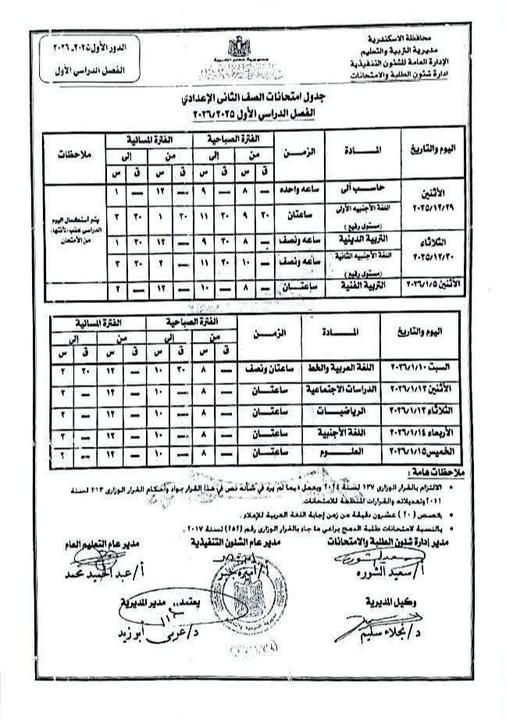 محافظة الاسكندرية
مديرية التربية والتعليم
الإدارة العامة للشئون التنفيذية
إدارة شئون الطلبة والامتحانات
الدور الأول ٢٠٢٥-٢٠٢٦
الفصل الدراسي الأول
جدول امتحانات الصف الثانى الإعدادي
الفصل الدراسي الأول ٢٠٢٦/٢٠٢٥
اليوم والتاريخ المادة الزمن الفترة الصباحية الفترة المسائية ملاحظات
من إلى من إلى
ق س ق س ق س ق س
الأثنين ٢٠٢٥/١٢/٢٩ حاسب آلى ساعه واحده — ٨ — ٩ — ١٢ — ١
اللغة الأجنبيه الأولى (مستوى رفيع) ساعتان ٣٠ ٩ ٣٠ ١١ ٣٠ ١ ٣٠ ٣
يتم استكمال اليوم الدراسي عقب الانتهاء من الامتحان
الثلاثاء ٢٠٢٥/١٢/٣٠ التربية الدينية ساعه ونصف — ٨ ٣٠ ٩ — ١٢ ٣٠ ١
اللغة الأجنبيه الثانية (مستوى رفيع) ساعه ونصف — ١٠ ٣٠ ١١ — ٢ ٣٠ ٣
الأثنين ٢٠٢٦/١/٥ التربية الفنية ساعتان — ٨ — ١٠ — ١٢ — ٢
اليوم والتاريخ المادة الزمن الفترة الصباحية الفترة المسائية
من إلى من إلى
ق س ق س ق س ق س
السبت ٢٠٢٦/١/١٠ اللغة العربية والخط ساعتان ونصف — ٨ ٣٠ ١٠ — ١٢ ٣٠ ٢
الأثنين ٢٠٢٦/١/١٢ الدراسات الاجتماعية ساعتان — ٨ — ١٠ — ١٢ — ٢
الثلاثاء ٢٠٢٦/١/١٣ الرياضيات ساعتان — ٨ — ١٠ — ١٢ — ٢
الأربعاء ٢٠٢٦/١/١٤ اللغة الأجنبية ساعتان — ٨ — ١٠ — ١٢ — ٢
الخميس ٢٠٢٦/١/١٥ العلوم ساعتان — ٨ — ١٠ — ١٢ — ٢
ملاحظات هامة :
الالتزام بالقرار الوزارى ١٣٧ لسنة ٢٠٢٤ ويعمل فيما لم يرد فى شأنه نص فى هذا القرار بمواد وأحكام القرار الوزارى ٣١٣ لسنة
٢٠١١ وتعديلاته والقرارات المنظمة للامتحانات
يخصص (٢٠) عشرون دقيقة من زمن إجابة اللغة العربية للإملاء .
بالنسبة لامتحانات طلبة الدمج يراعى ما جاء بالقرار الوزارى رقم (٢٥٢) لسنة ٢٠١٧ .
مدير إدارة شئون الطلبة والامتحانات
مدير عام الشئون التنفيذية
مدير عام التعليم العام
أ/ سعيد الشوره
أ/ أميرة خير
أ/ عبد الحميد محمد
وكيل المديرية
يعتمد،، مدير المديرية
د/ نجلاء سليم
د/ عربى أبو زيد